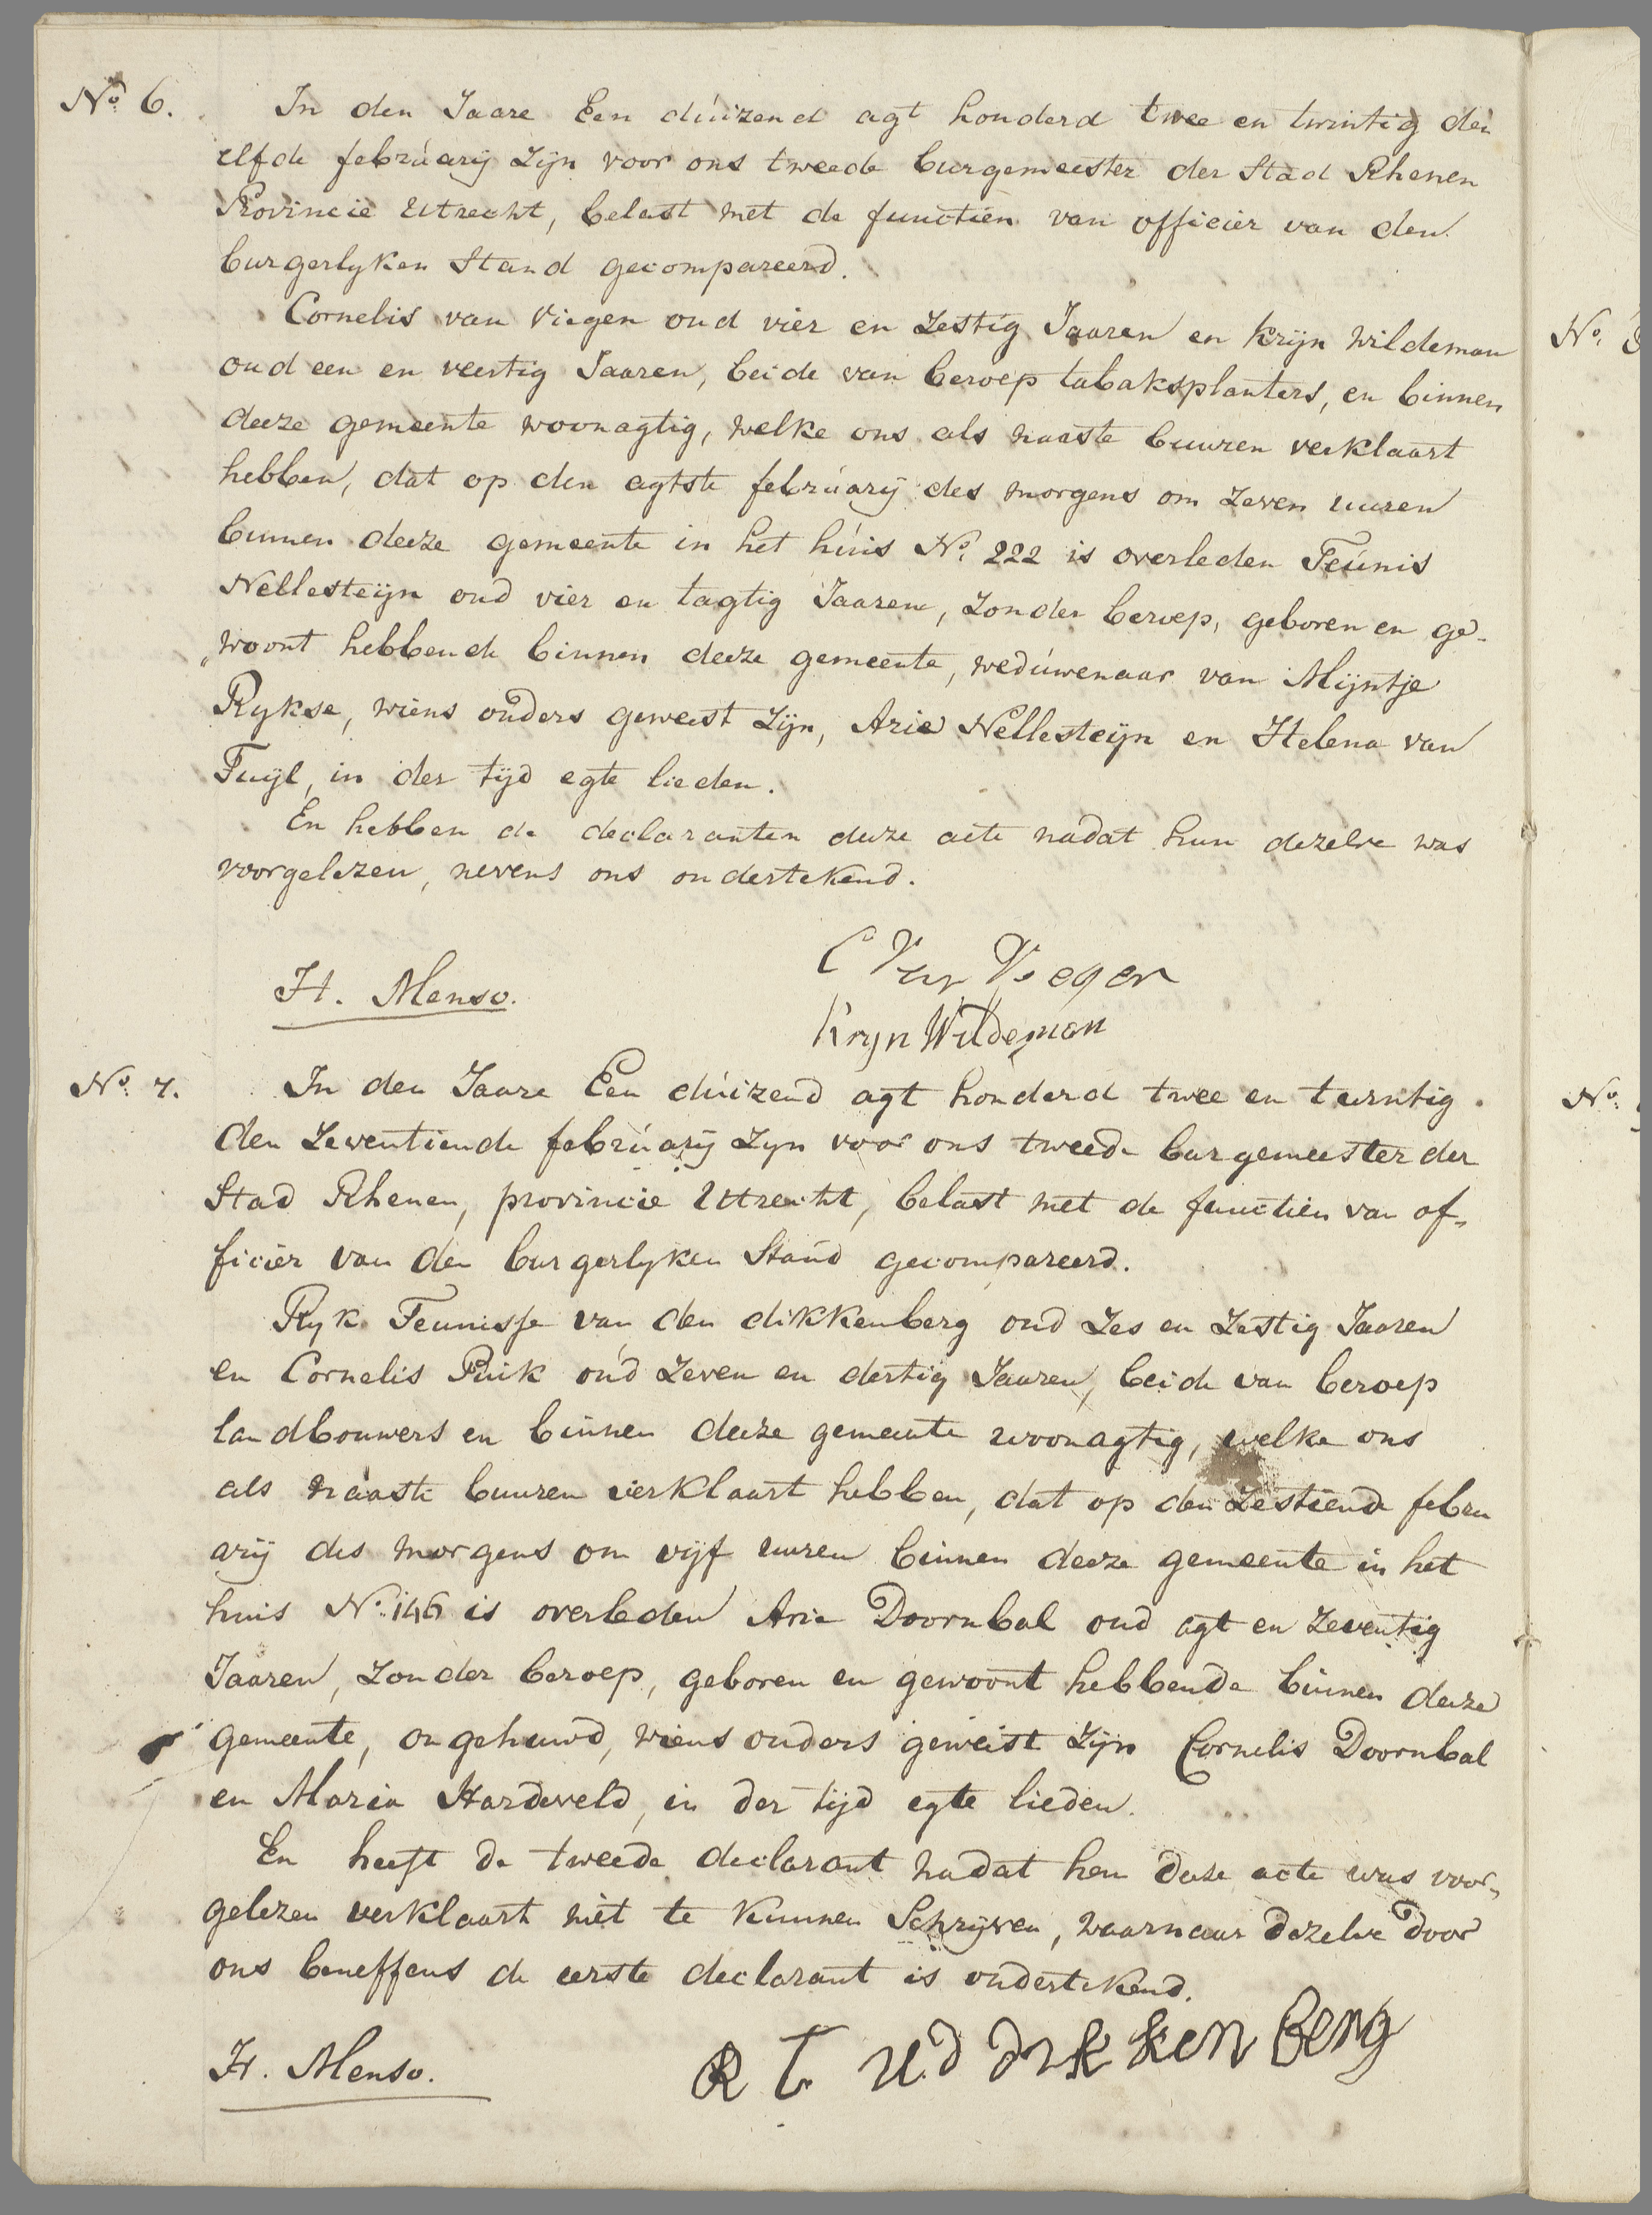 No. 6.
In den Jaare Een duizend agt honderd twee en twintig den
elfde february zijn voor ons tweede burgemeester der Stad Rhenen
Provincie Utrecht, belast met de functien van officier van den
burgerlyken Stand gecompareerd.
Cornelis van Viegen oud vier en zestig Jaaren en Krijn Wildeman
oud een en veertig Jaaren, beide van beroep tabaksplanters, en binnen
deeze gemeente woonagtig, welke ons als naaste buuren verklaart
hebben, dat op den agtste february des morgens om zeven uuren
binnen deeze gemeente in het huis No. 222 is overleden Teunis
Nellesteijn oud vier en tagtig Jaaren, zonder beroep, geboren en ge-
„woont hebbende binnen deeze gemeente, weduwenaar van Mijntje
Rykse, wiens ouders geweest zijn, Arie Nellesteijn en Helena van
Tuijl, in der tijd egte lieden.
En hebben de declaranten deeze acte nadat hun dezelve was
voorgelezen, nevens ons ondertekend.
C Van Viegen
H. Menso.
Kryn Wildeman
No. 7.
In den Jaare Een duizend agt honderd twee en twintig.
den zeventiende february zyn voor ons tweede burgemeester der
Stad Rhenen, provincie Utrecht, belast met de functien van of„
ficier van den burgerlyken Stand gecompareerd.
Ryk Teunisse van den dikkenberg oud zes en zestig Jaaren
en Cornelis Ruik oud zeven en dertig Jaaren, beide van beroep
landbouwers en binnen deeze gemeente woonagtig, welke ons
als naaste buuren verklaart hebben, dat op den zestiende febru
arij des morgens om vijf uuren binnen deeze gemeente in het
huis No. 146 is overleden Arie Doornbal oud agt en zeventig
Jaaren, zonder beroep, geboren en gewoont hebbende binnen deeze
gemeente, ongehuwd, wiens ouders geweest zijn Cornelis Doornbal
en Maria Hardeveld, in der tijd egte lieden.
En heeft de tweede declarant nadat hem deeze acte was voor„
gelezen verklaart niet te kunnen Schrijven, waarnaar dezelve door
ons beneffens de eerste declarant is ondertekend.
H. Menso.
R T v d dikkenberg
No.
No.